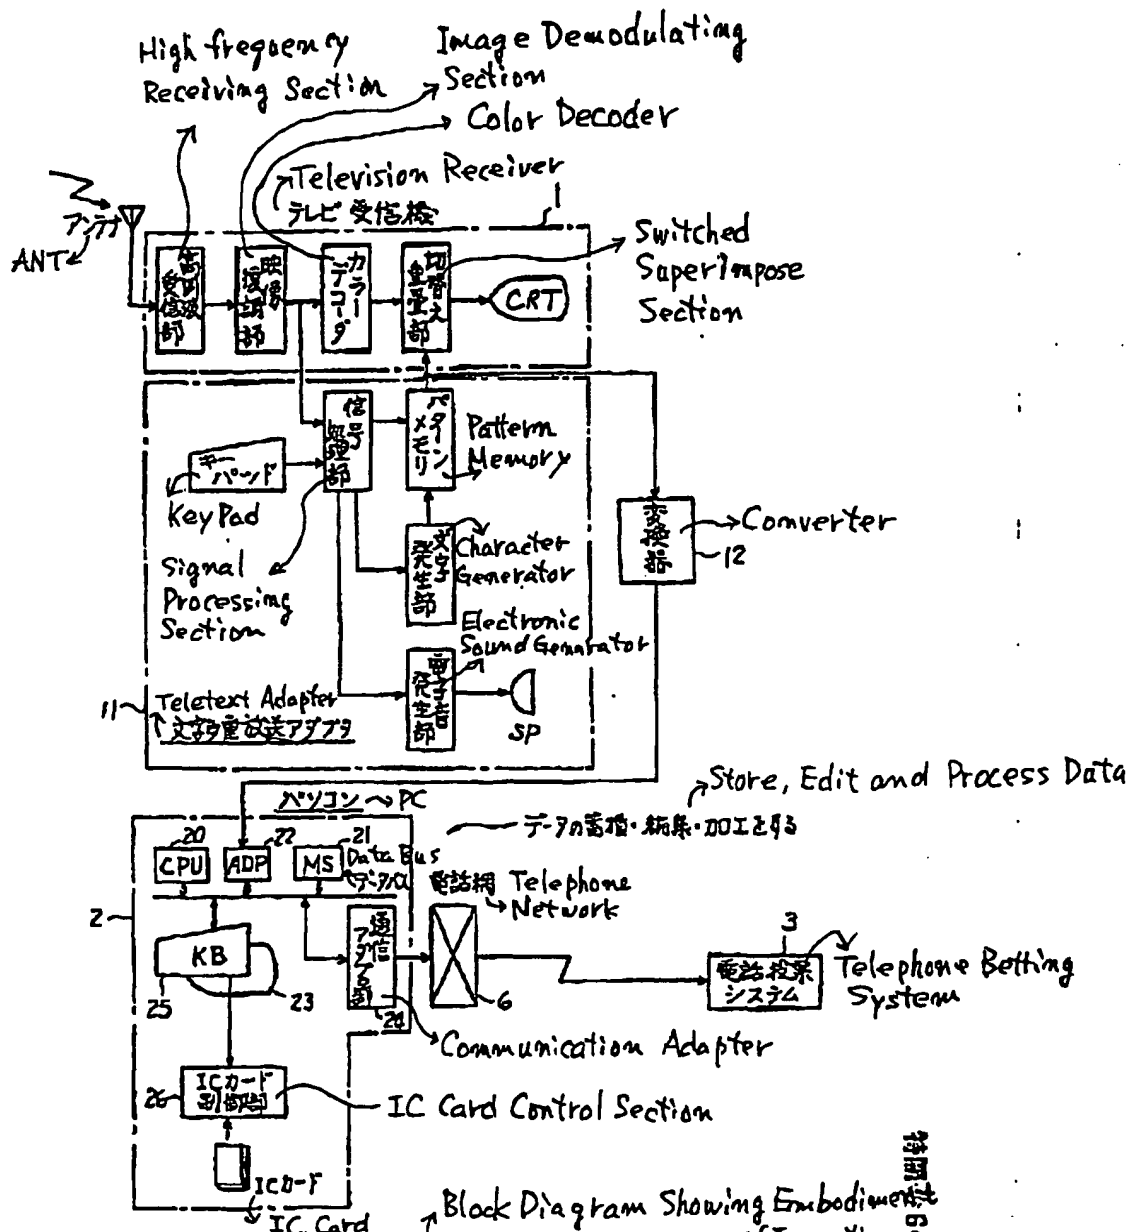 High frequency
Receiving Section
Image Demodulating
Section
Color Decoder
Television Receiver
テレビ受信機
1
Switched
SuperImpose
Section
アンテナ
ANT
高周波
受信部
映像
復調部
カラー
デコーダ
重畳部
CRT
信号
処理部
パターン
メモリ
Pattern
Memory
キー
パッド
Key Pad
Signal
Processing
Section
文字
発生部
Character
Generator
Converter
12
Electronic
Sound Generator
電子音
発生部
SP
11
Teletext Adapter
文字多重放送アダプタ
パソコン
PC
Store, Edit and Process Data
データの蓄積・編集・加工をする
20
22
21
CPU
ADP
MS
Data Bus
データバス
電話網
Telephone
Network
2
KB
25
23
通信
アダプタ部
24
6
3
電話投票
システム
Telephone Betting
System
Communication Adapter
26
ICカード
制御部
IC Card Control Section
ICカード
IC Card
Block Diagram Showing Embodiment